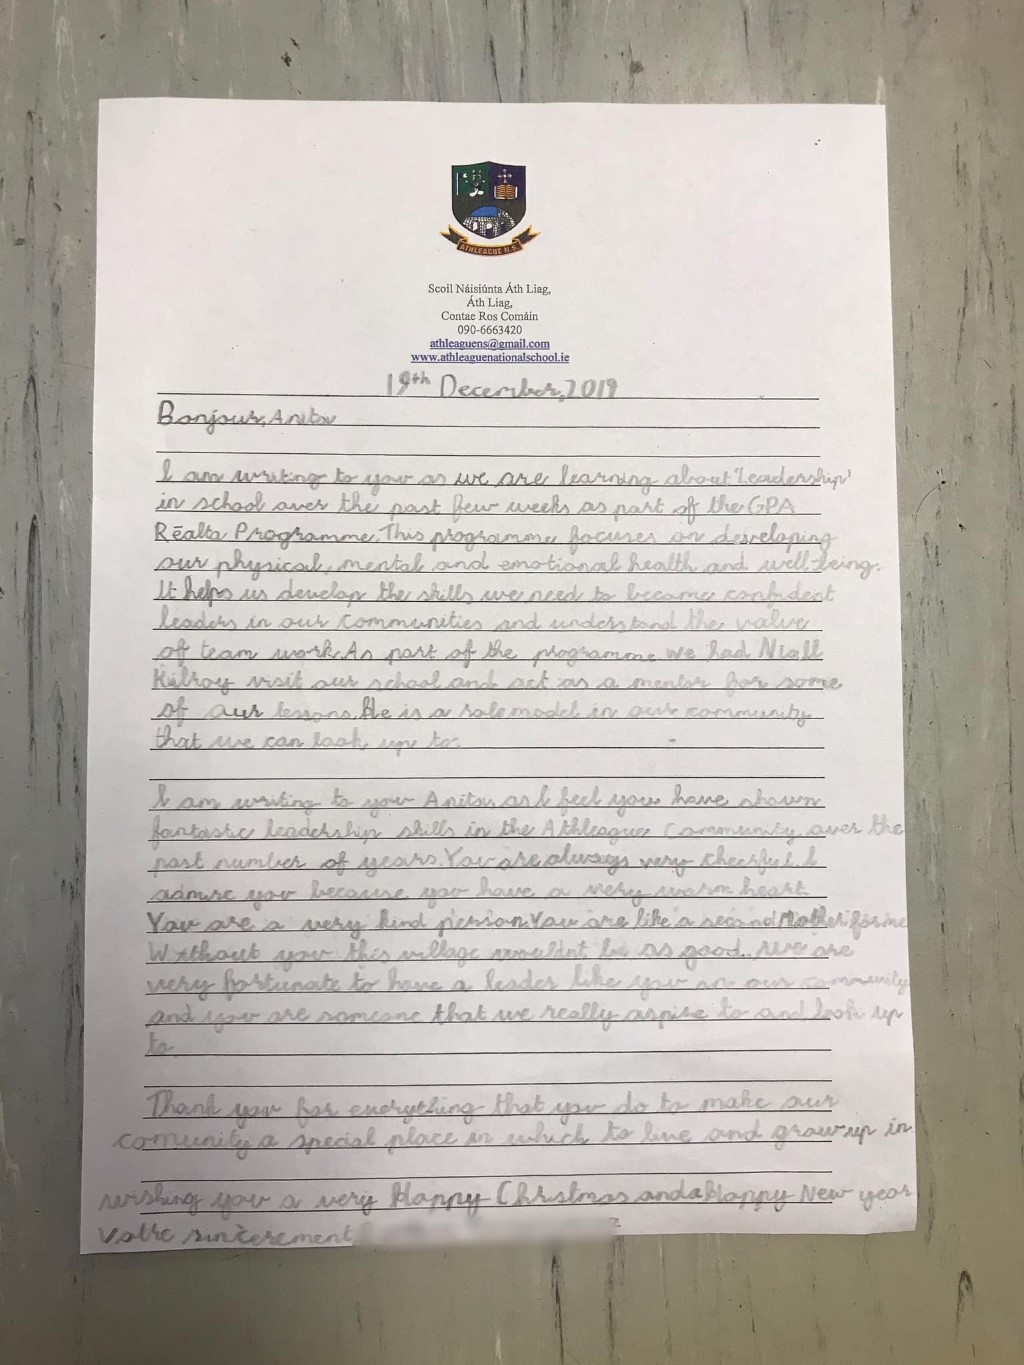 ATHLEAGUE N.S.
Scoil Náisiúnta Áth Liag,
Áth Liag,
Contae Ros Comáin
090-6663420
athleaguens@gmail.com
www.athleaguenationalschool.ie
19th December, 2019
Bonjour, Anita
I am writing to you as we are learning about 'Leadership'
in school over the past few weeks as part of the GPA
Réalta Programme. This programme focuses on developing
our physical, mental and emotional health and well-being.
It helps us develop the skills we need to become confident
leaders in our communities and understand the value
of team work. As part of the programme we had Niall
Kilroy visit our school and act as a mentor for some
of our lessons. He is a role model in our community
that we can look up to.
I am writing to you Anita, as I feel you have shown
fantastic leadership skills in the Athleague Community over the
past number of years. You are always very cheerful. I
admire you because you have a very warm heart
You are a very kind person. You are like a second Mother for me
Without you this village wouldnt be as good. We are
very fortunate to have a leader like you in our community
and you are someone that we really aspire to and look up
to.
Thank you for everything that you do to make our
comunity a special place in which to live and grow up in
wishing you a very Happy Christmas and a Happy New year
Votre sincerement